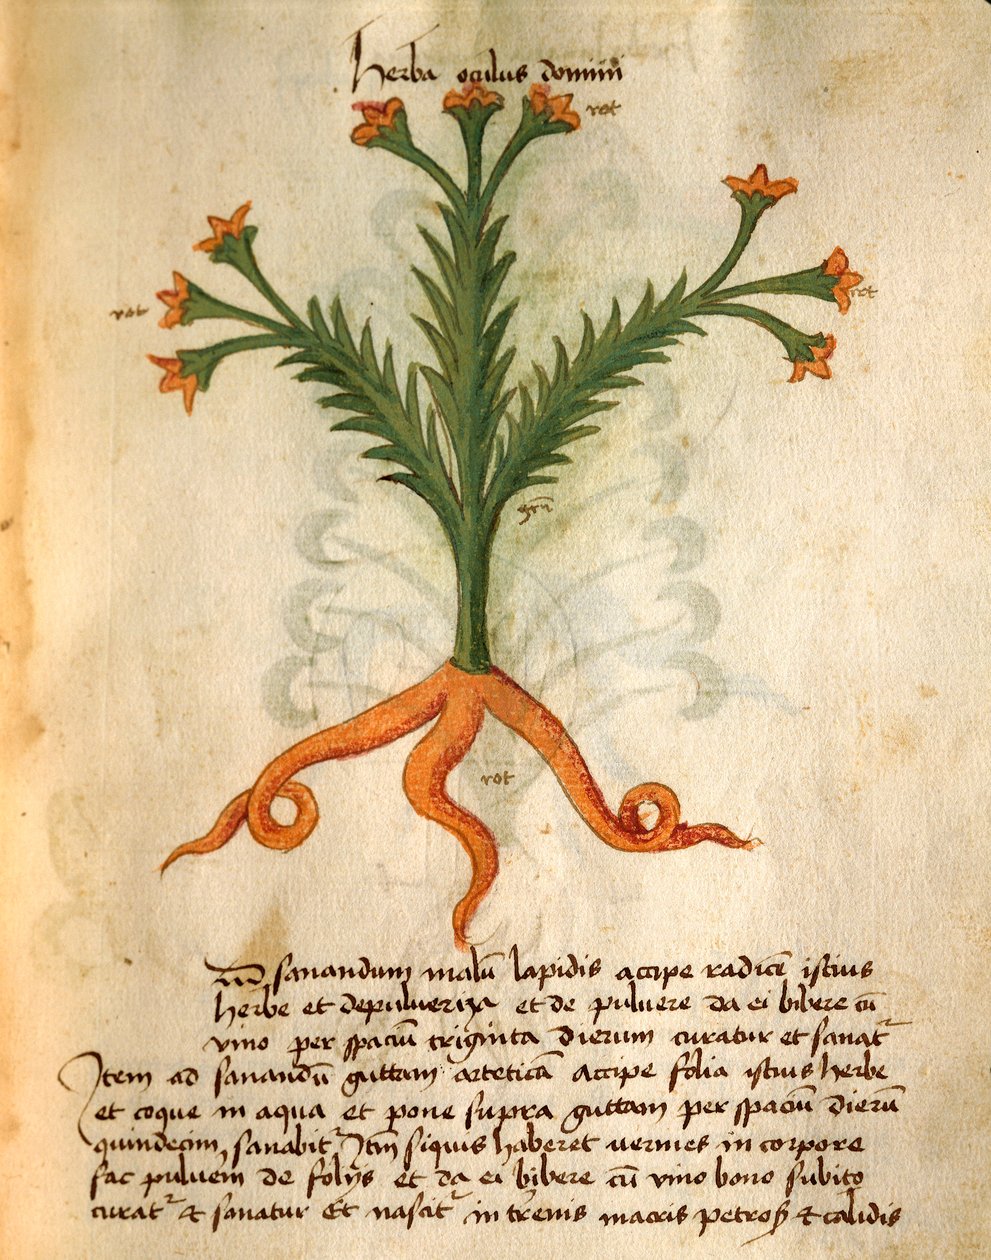 Herba oculus domini
rot
rot
rot
grū
rot
Ad sanandum malū lapidis accipe radicē istius
herbe et depulueriza et de puluere da ei bibere cū
vino per spaciū triginta dierum curatur et sanatᷣ
Item ad sanandū guttam arteticā accipe folia istius herbe
et coque in aqua et pone supra guttam per spaciū dierū
quindecim sanabitᷣ Itm̄ siquis haberet vermes in corpore
fac puluem de folijs et da ei bibere cū vino bono subito
curatᷣ & sanatur Et nascitᷣ in trēnis macris petroꝝ & calidis